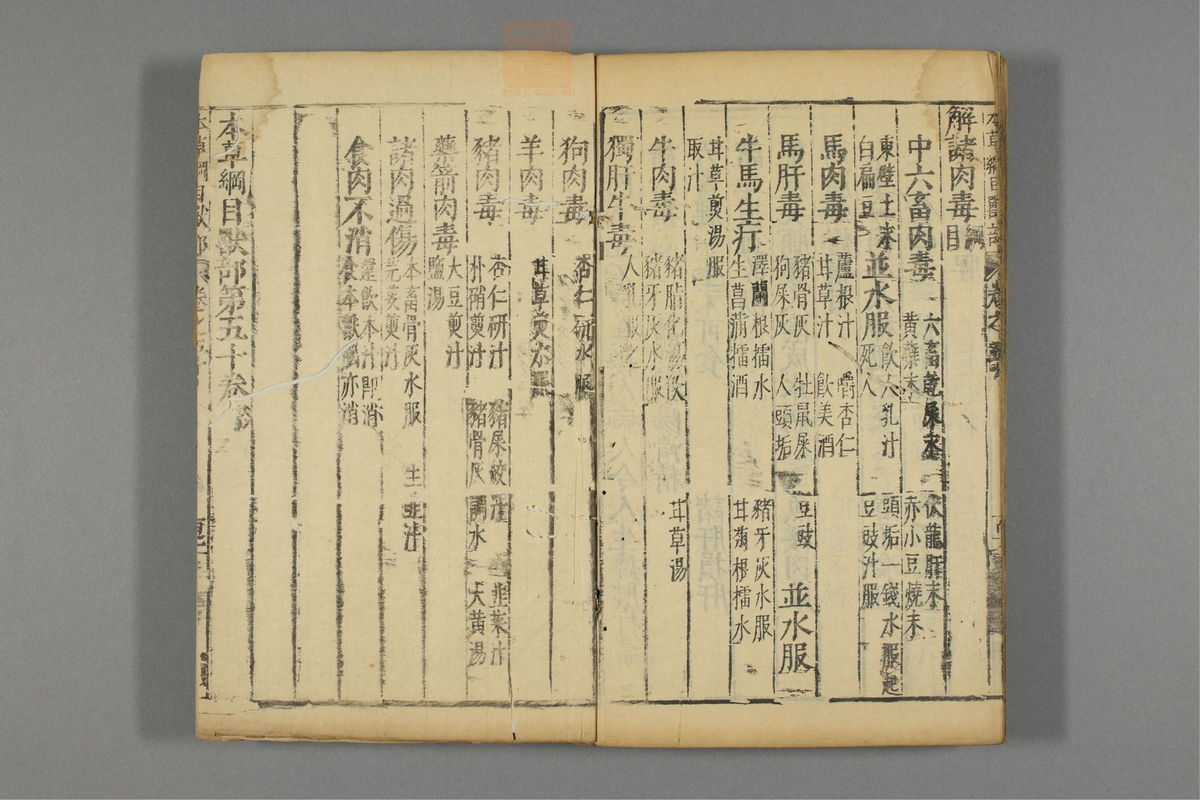 解諸肉毒
中六畜肉毒 六畜乾屎末 伏龍肝末
黃蘗末 赤小豆燒末
東壁土末 並水服 飲人乳汁 頭垢一錢水服起
白扁豆 死人 豆豉汁服
馬肉毒 蘆根汁 嚼杏仁
甘草汁 飲美酒
馬肝毒 豬骨灰 牡鼠屎 豆豉 並水服
狗屎灰 人頭垢
牛馬生疔 澤蘭根擂水 豬牙灰水服
生菖蒲擂酒 甘菊根擂水
甘草煎湯服
取汁
牛肉毒 豬脂化湯飲 甘草湯
豬牙灰水服
獨肝牛毒 人乳服之
狗肉毒 杏仁研水服
羊肉毒 甘草煎水服
豬肉毒 杏仁研汁 豬屎絞汁 韭菜汁
朴硝煎汁 豬骨灰調水 大黃湯
藥箭肉毒 大豆煎汁
鹽湯
諸肉過傷 本畜骨灰水服 生韭汁
芫荽煎汁
食肉不消 還飲本汁即消
食本獸腦亦消
本草綱目獸部第五十卷